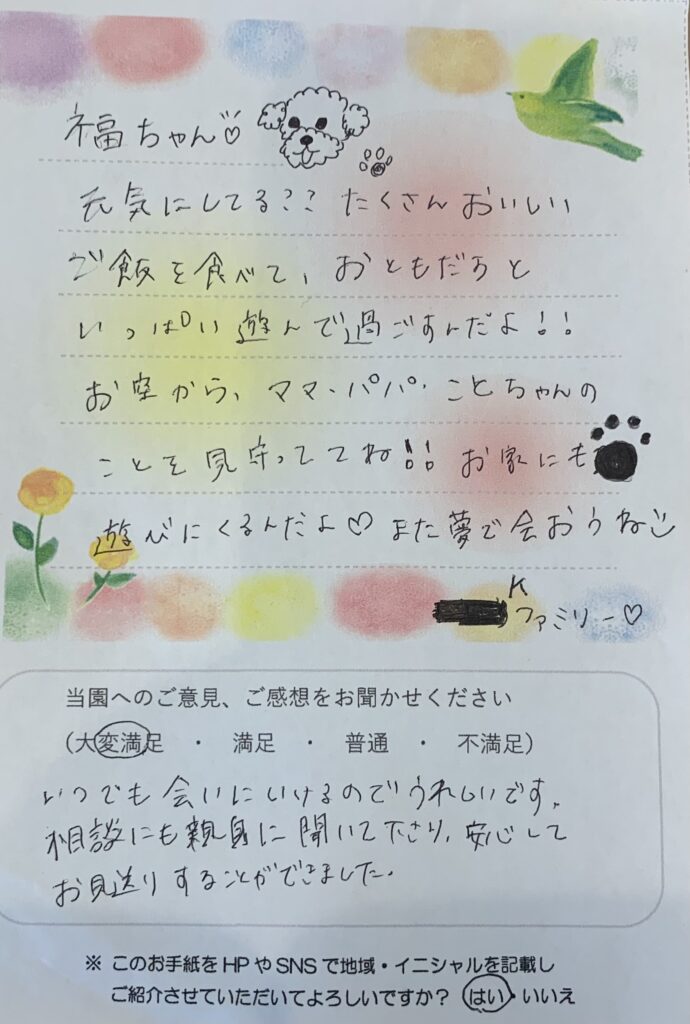 福ちゃん♡
元気にしてる？？ たくさんおいしい
ご飯を食べて、おともだちと
いっぱい遊んで過ごすんだよ！！
お空から、ママ・パパ・ことちゃんの
ことを見守っててね！！ お家にも
遊びにくるんだよ♡ また夢で会おうね
K
ファミリー♡
当園へのご意見、ご感想をお聞かせください
（大変満足　・　満足　・　普通　・　不満足）
いつでも会いにいけるのでうれしいです。
相談にも親身に聞いて下さり、安心して
お見送りすることができました。
※ このお手紙をHPやSNSで地域・イニシャルを記載し
ご紹介させていただいてよろしいですか？ はい・いいえ